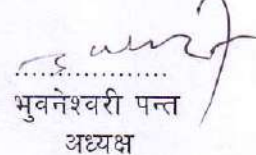 ................
भुवनेश्वरी पन्त
अध्यक्ष